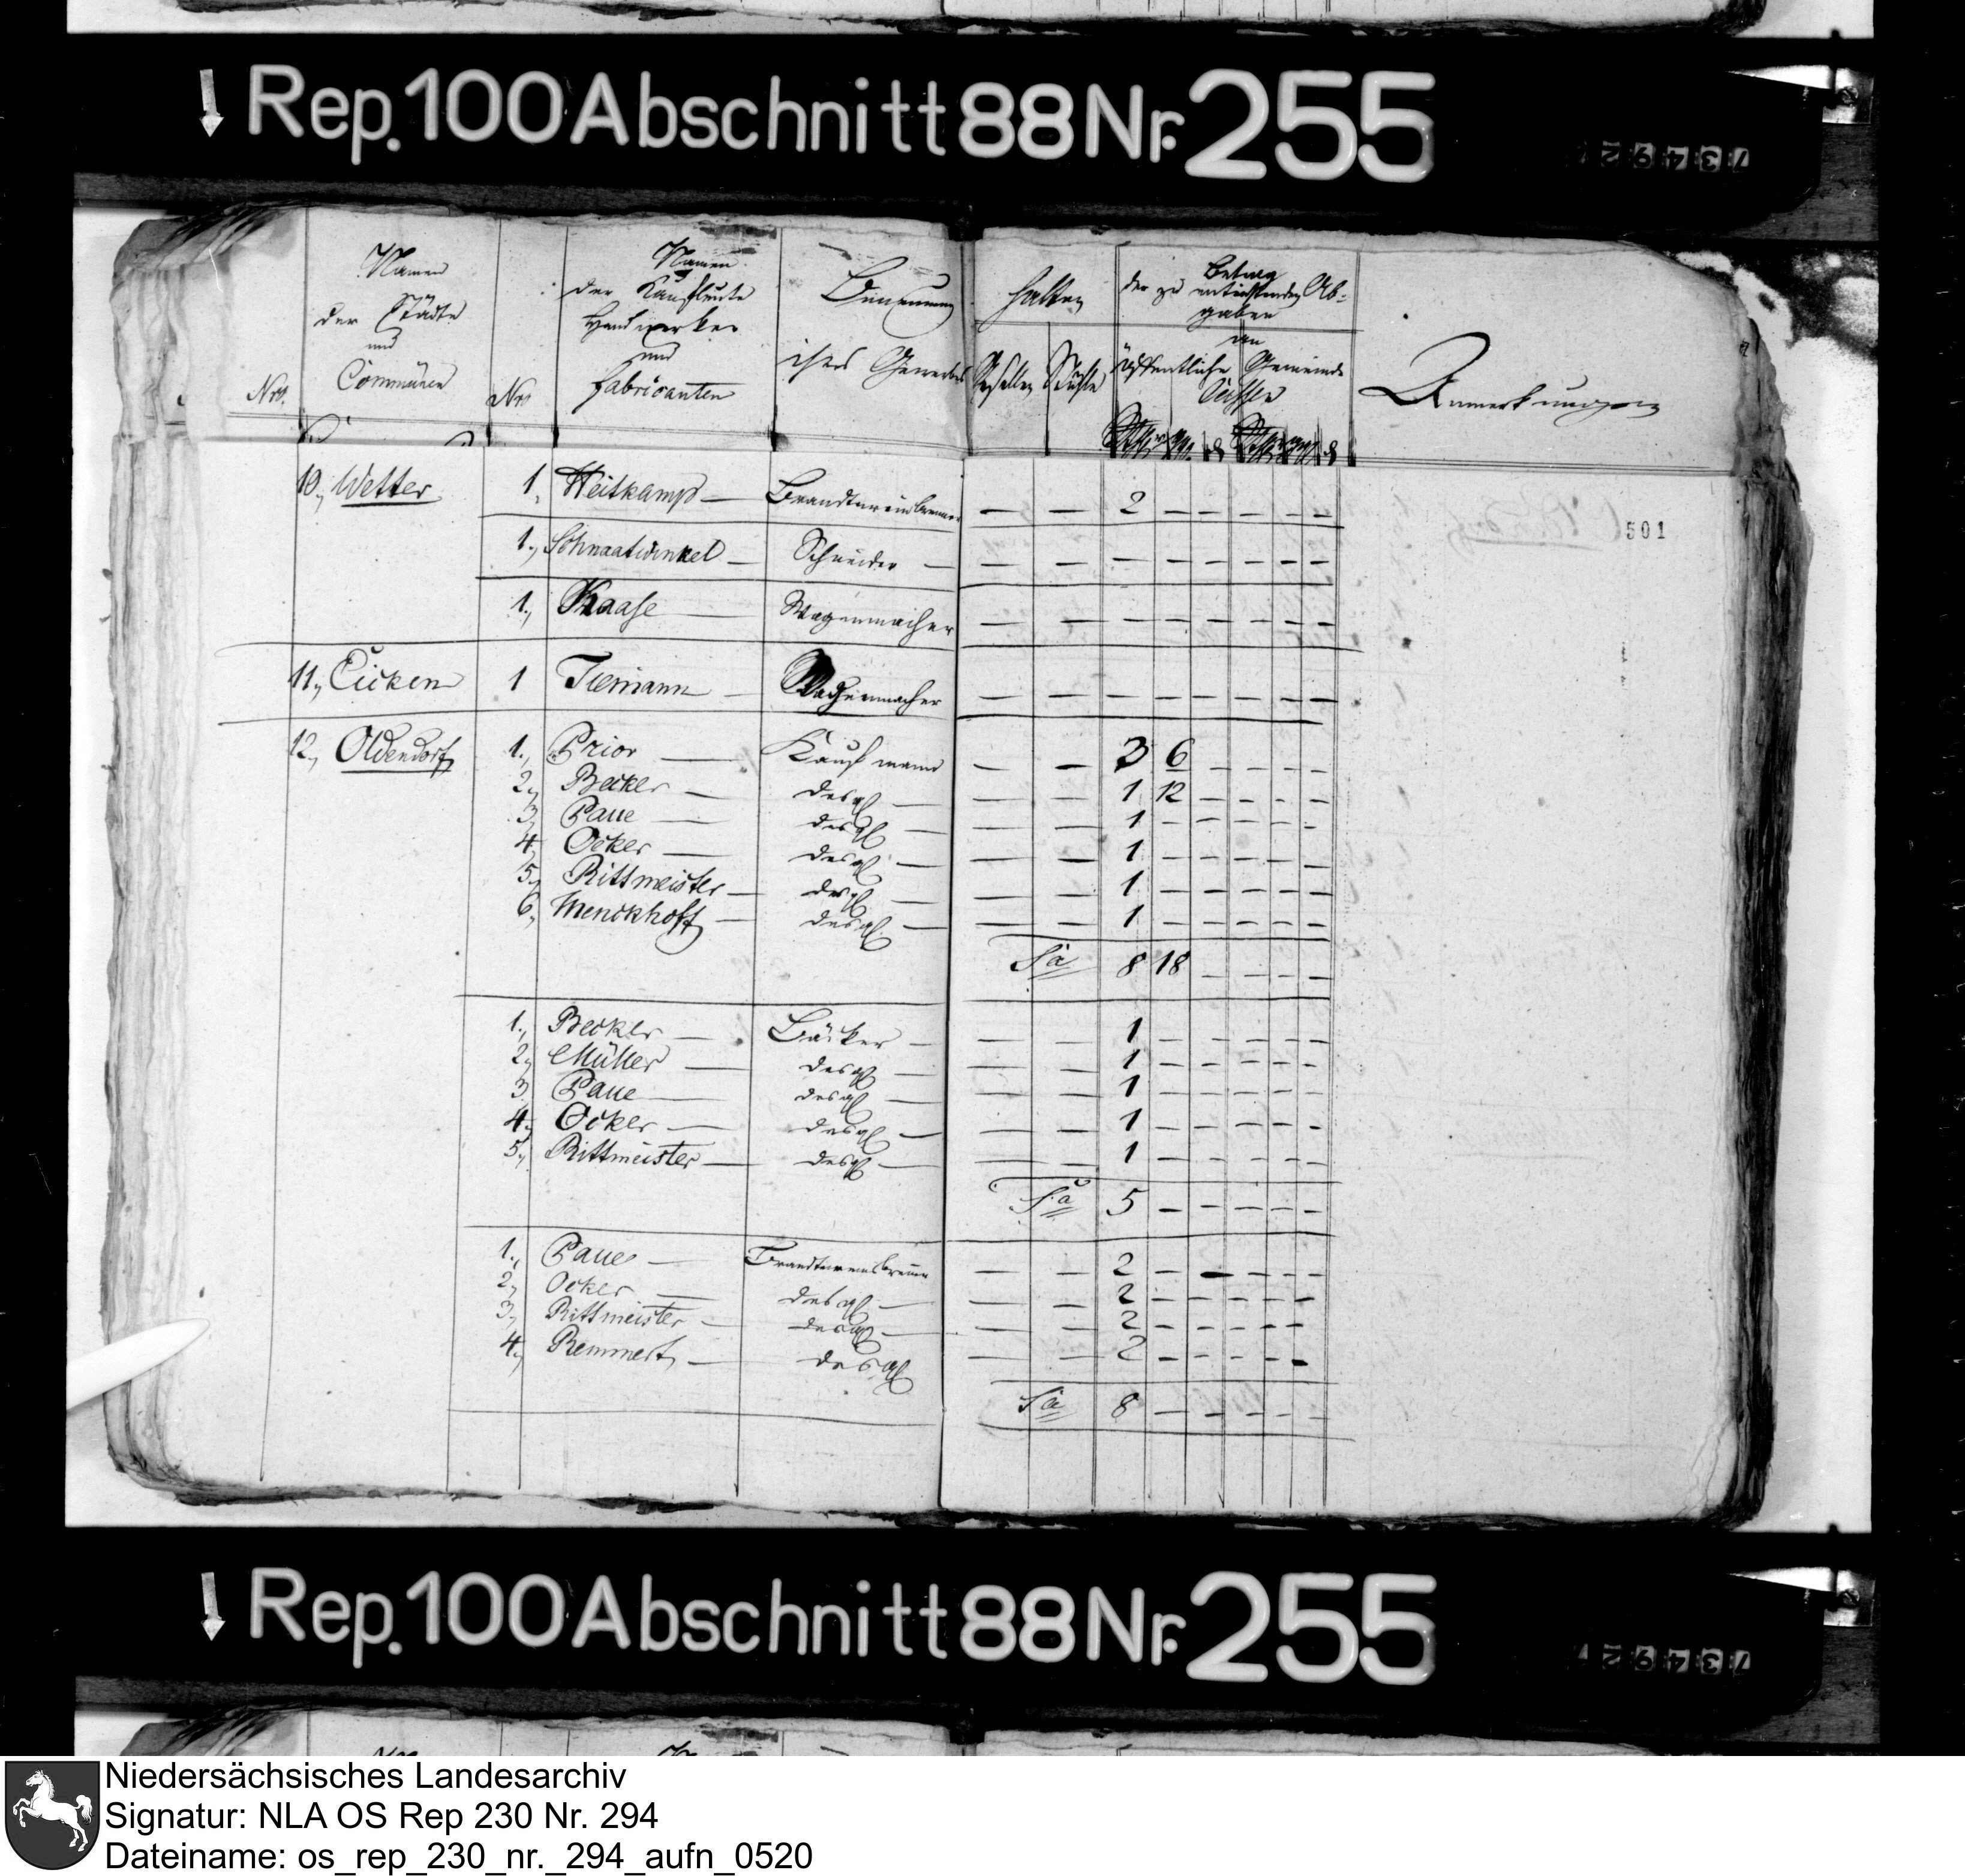 Rep. 100 Abschnitt 88 Nr. 255
Nro.
Namen
der Städte
und
Communen
Nro
Namen
der Kaufleute
Handwerker
und
Fabricanten
Benennung
ihres Gewerbes
halten
Gesellen Stühle
Betrag
der zu entrichtenden Ab-
gaben
an
öffentliche Gemeinde
Anmerkungen
501
10., Wetter 1., Weitkamp — Brandtweinbrenner — — 2 — — — — —
1., Schnaatwinkel — Schneider — — — — — — — — —
1., Haase — Wagenmacher — — — — — — — —
11., Eicken 1 Tiemann — Wagenmacher — — — — — — — —
12., Oldendorf 1., Prior — Kaufmann — — 3 6 — — — —
2., Becker — desgl — — — 1 12 — — — —
3., Paue — desgl — — — 1 — — — — —
4., Ocker — desgl — — — 1 — — — — —
5., Rittmeister — desgl — — — 1 — — — — —
6., Menckhoff — desgl — — — 1 — — — — —
Sa 8 18 — — — —
1., Becker — Bäcker — — — 1 — — — — —
2., Müller — desgl — — — 1 — — — — —
3., Paue — desgl — — — 1 — — — — —
4., Ocker — desgl — — — 1 — — — — —
5., Rittmeister — desgl — — — 1 — — — — —
Sa 5 — — — — —
1., Paue — Brandtweinbrenner — — 2 — — — — —
2., Ocker — desgl — — — 2 — — — — —
3., Rittmeister — desgl — — — 2 — — — — —
4., Remmert — desgl — — 2 — — — — —
Sa 8 — — — — —
Rep. 100 Abschnitt 88 Nr. 255
Niedersächsisches Landesarchiv
Signatur: NLA OS Rep 230 Nr. 294
Dateiname: os_rep_230_nr._294_aufn_0520